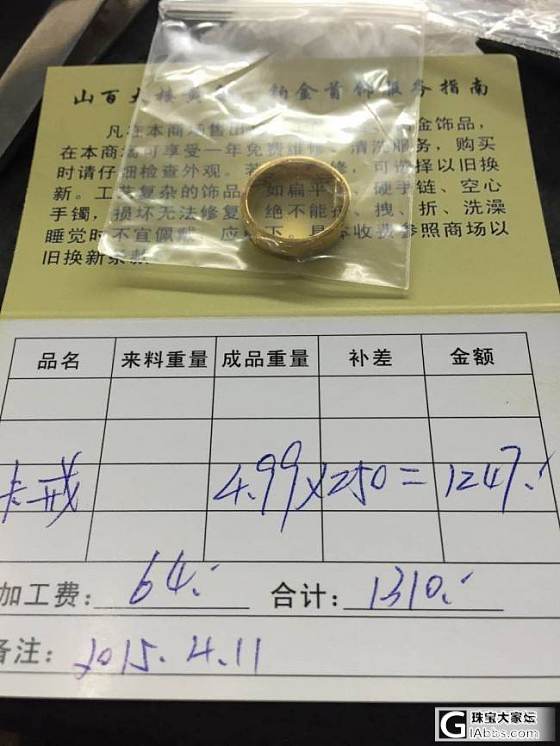 山百大楼黄 铂金首饰服务指南
凡在本商场售出 金饰品，
在本商场可享受一年免费维修、清洗服务，购买
时请仔细检查外观。若 修，可选择以旧换
新。工艺复杂的饰品，如扁平 、硬手链、空心
手镯，损坏无法修复 绝不能 、拽、折、洗澡
睡觉时不宜佩戴 应 下。具体收费参照商场以
旧换新条款
品名 来料重量 成品重量 补差 金额
卡戒 4.99×250=1247.
加工费： 64. 合计： 1310.
备注： 2015.4.11
珠宝大家坛
GIAbbs.com